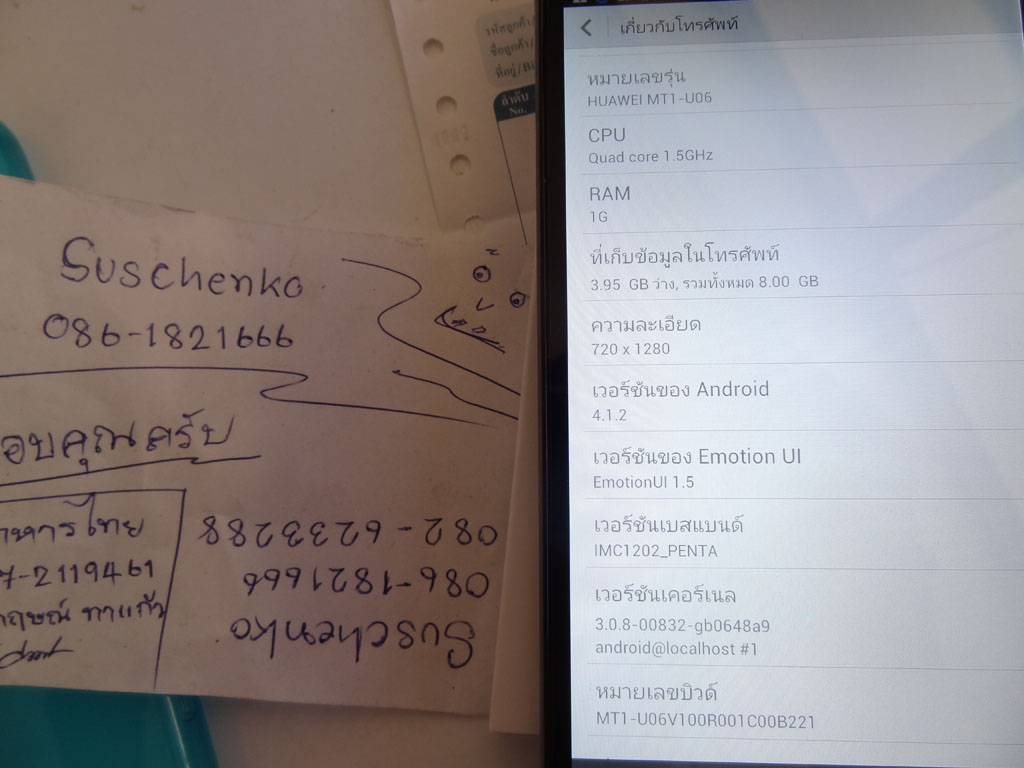 รหัสลูกค้า/
ชื่อลูกค้า/
ที่อยู่/Bi
ลำดับ
No.
Suschenko
086-1821666
อบคุณครับ
าหารไทย
7-2119461
กฤษณ์ ทาแก้ว
082-6233288
086-1821666
Suschenko
เกี่ยวกับโทรศัพท์
หมายเลขรุ่น
HUAWEI MT1-U06
CPU
Quad core 1.5GHz
RAM
1G
ที่เก็บข้อมูลในโทรศัพท์
3.95 GB ว่าง, รวมทั้งหมด 8.00 GB
ความละเอียด
720 x 1280
เวอร์ชันของ Android
4.1.2
เวอร์ชันของ Emotion UI
EmotionUI 1.5
เวอร์ชันเบสแบนด์
IMC1202_PENTA
เวอร์ชันเคอร์เนล
3.0.8-00832-gb0648a9
android@localhost #1
หมายเลขบิวด์
MT1-U06V100R001C00B221